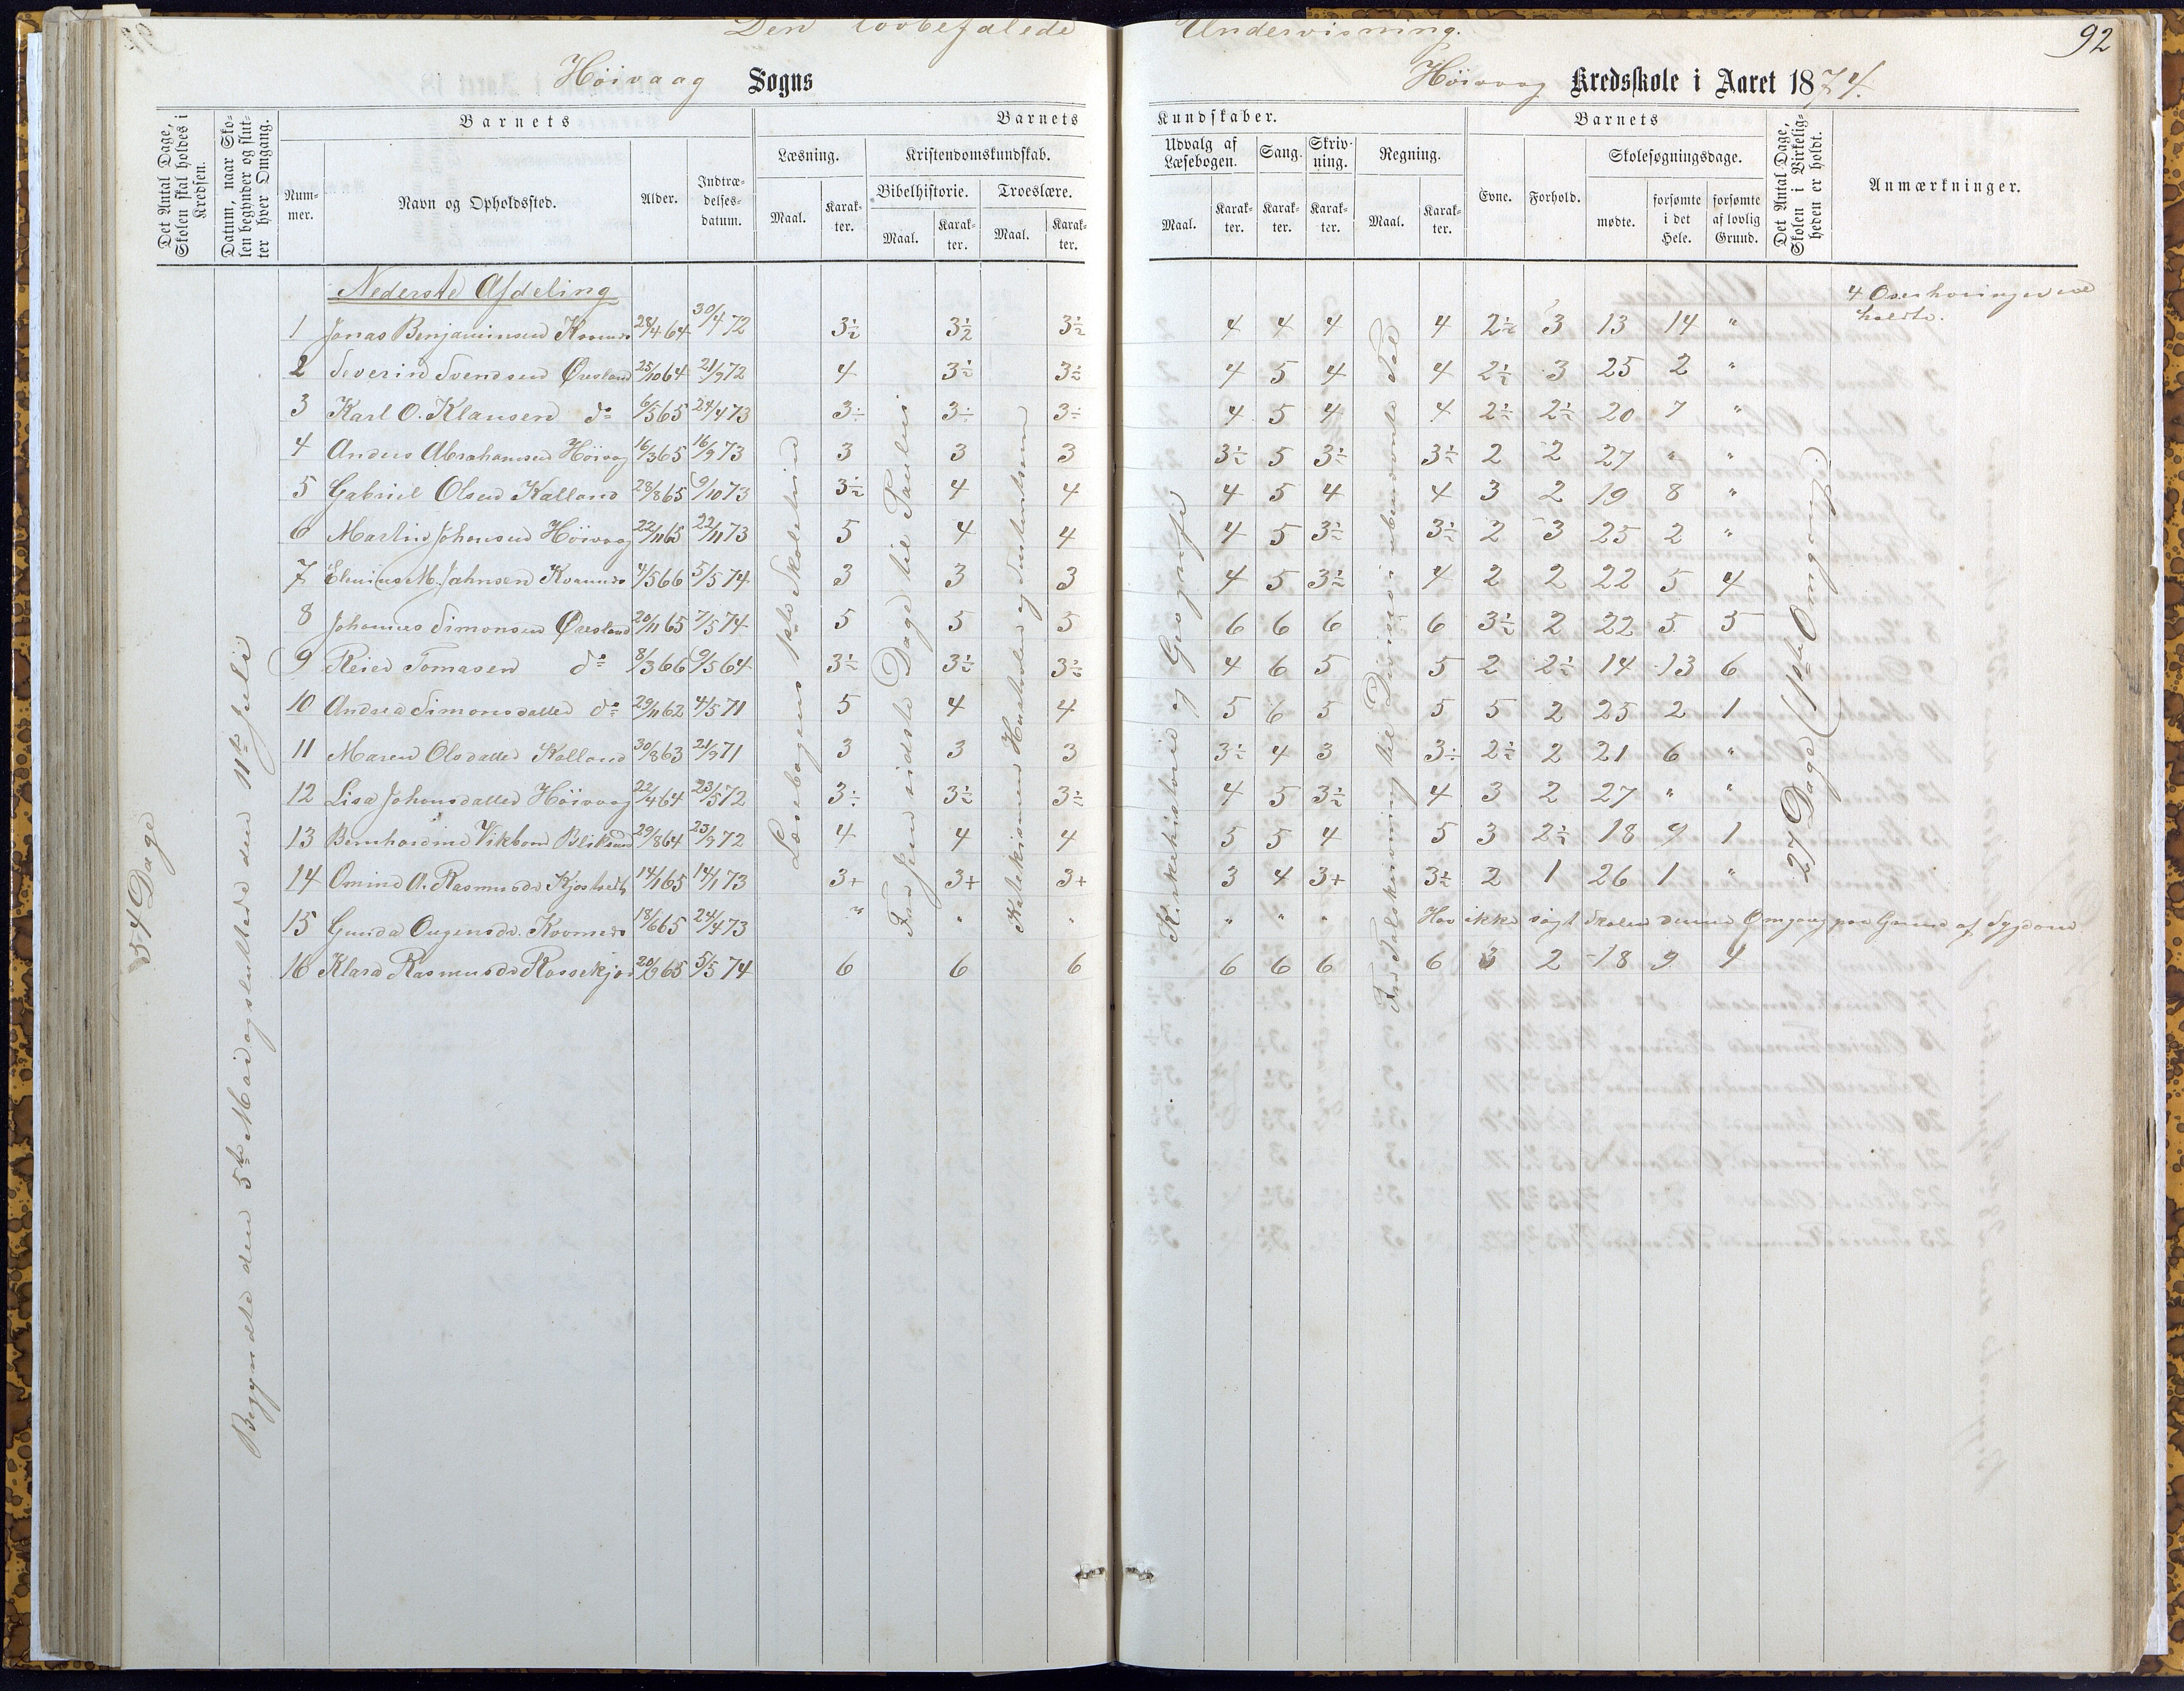 Den lovbefalede Undervisning.
92
Høivaag Sogns
Høivaag Kredsskole i Aaret 1874.
Det Antal Dage, Skolen skal holdes i Kredsen.
Datum, naar Skolen begynder og slutter hver Omgang.
Barnets
Nummer.
Navn og Opholdssted.
Alder.
Indtrædelsesdatum.
Barnets Kundskaber.
Læsning.
Maal.
Karakter.
Kristendomskundskab.
Bibelhistorie.
Maal.
Karakter.
Troeslære.
Maal.
Karakter.
Udvalg af Læsebogen.
Maal.
Karakter.
Sang.
Karakter.
Skrivning.
Karakter.
Regning.
Maal.
Karakter.
Barnets
Evne.
Forhold.
Skolesøgningsdage.
mødte.
forsømte i det Hele.
forsømte af lovlig Grund.
Det Antal Dage, Skolen i Virkeligheden er holdt.
Anmærkninger.
54 Dage
Begyndte den 5te Mai og sluttede den 11te Juli
Læsebogens 1ste Skoletrin
Fra Jesu sidste Dage til Paulus
Kirkehistorie og Geografi
Fra Talskrivning til Division i ubenævnte Tal
27 Dage (1ste Omgang).
Nederste Afdeling
4 Overhøringer
holdte.
1 Jonas Benjaminsen 28/4 64 30/4 72 3½ 3½ 3½ 4 4 4 4 2½ 3 13 14 "
2 Severin Svendsen Øresland 25/10 64 21/9 72 4 3½ 3½ 4 5 4 4 2½ 3 25 2 "
3 Karl O. Klausen do 6/5 65 24/4 73 3÷ 3÷ 3÷ 4 5 4 4 2½ 2½ 20 7 "
4 Anders Abrahamsen Høivaag 16/3 65 16/9 73 3 3 3 3½ 5 3½ 3½ 2 2 27 " "
5 Gabriel Olsen Kalland 28/8 65 9/10 73 3½ 4 4 4 5 4 4 3 2 19 8 "
6 Martin Johensen Høivaag 22/11 65 22/11 73 5 4 4 4 5 3½ 3½ 2 3 25 2 "
7 M. Jahnsen 4/5 66 5/5 74 3 3 3 4 5 3½ 4 2 2 22 5 4
8 Johannes Simonsen Øresland 20/11 65 7/5 74 5 5 5 6 6 6 6 3½ 2 22 5 5
9 Reier Tomasen do 8/3 66 9/5 64 3½ 3½ 3½ 4 6 5 5 2 2½ 14 13 6
10 Andrea Simonsdatter do 29/11 62 4/5 71 5 4 4 5 6 5 5 5 2 25 2 1
11 Maren Olsdatter Kalland 30/8 63 21/9 71 3 3 3 3½ 4 3 3÷ 2½ 2 21 6 "
12 Lisa Johensdatter Høivaag 22/4 64 23/5 72 3÷ 3½ 3½ 4 5 3½ 4 3 2 27 " "
13 Bernhardine Vikbom 29/8 64 23/9 72 4 4 4 5 5 4 5 3 2½ 18 9 1
14 Omine A. Rasmusdr 14/1 65 14/1 73 3+ 3+ 3+ 3 4 3+ 3½ 2 1 26 1 "
15 Gunda 18/6 65 24/4 73 " " " " " " Har ikke søgt Skolen denne Omgang paa Grund af Sygdom
16 Klara Rasmusdr 20/6 65 5/5 74 6 6 6 6 6 6 6 3 2 18 9 4